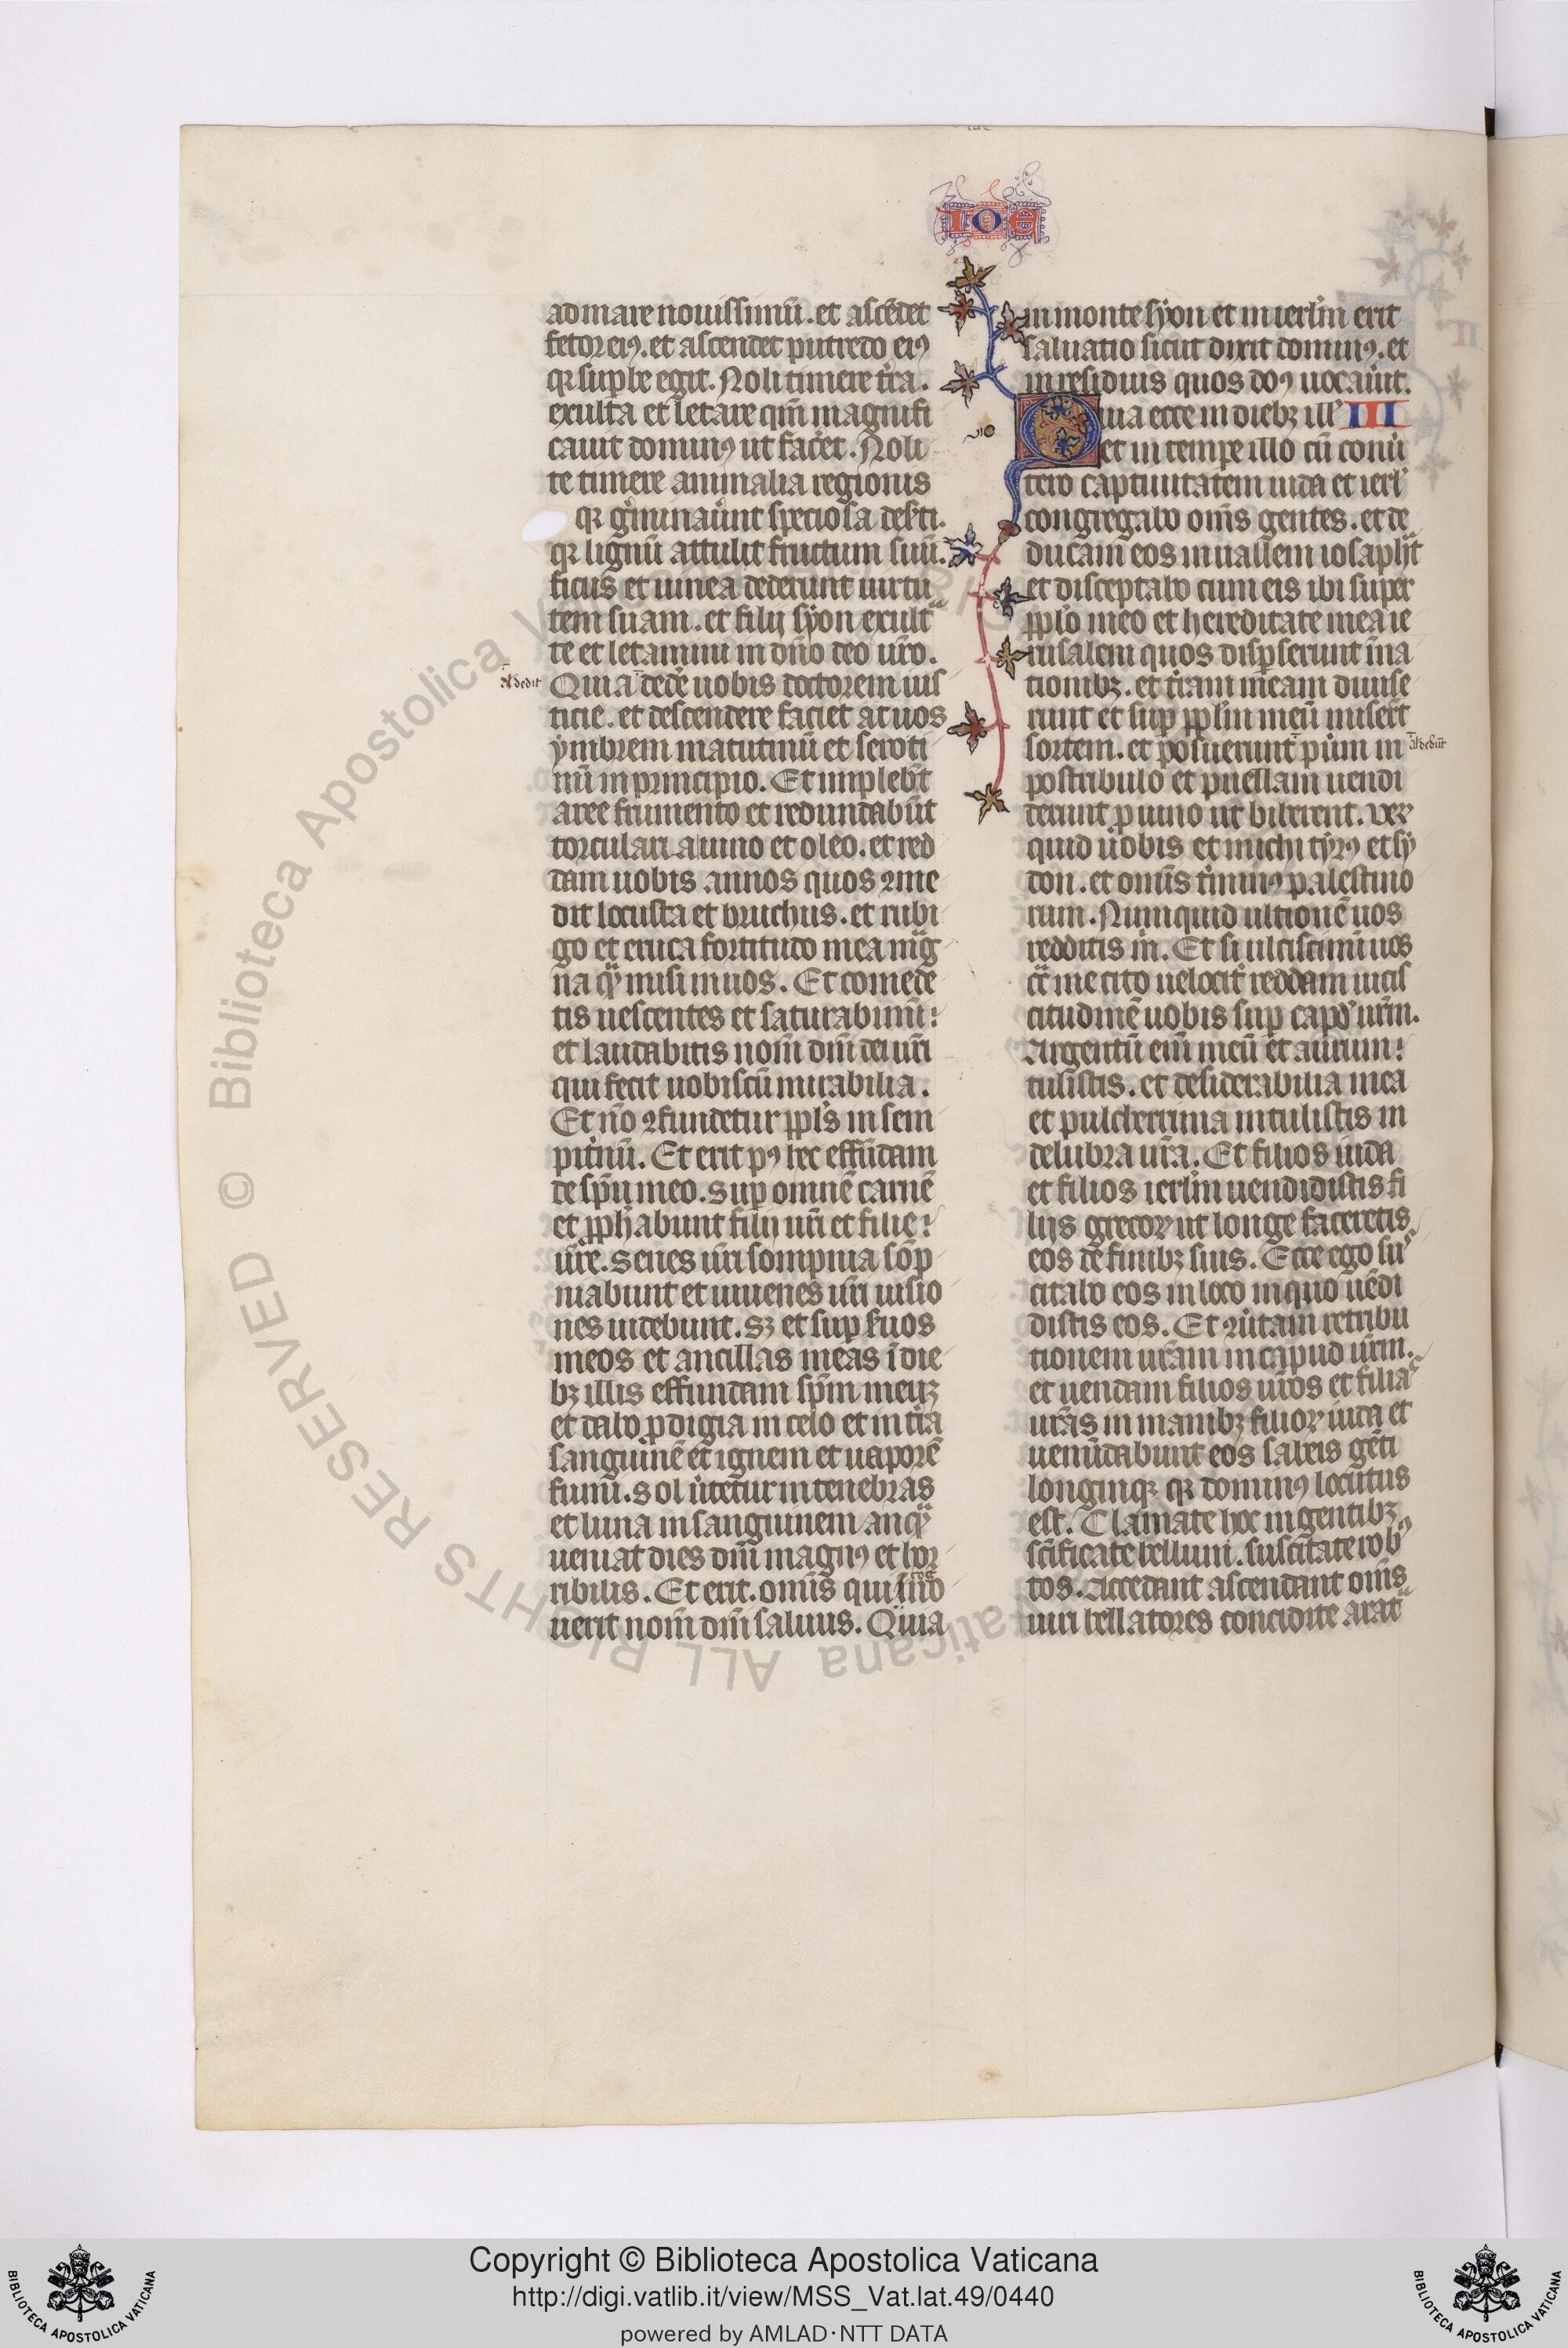 IOE
ad mare nouissimū. et ascēdet
fetor eiꝰ. et ascendet putredo eiꝰ
qꝛ supbe egit. Noli timere tr̄a.
exulta et letare qm̄ magnifi
cauit dominꝰ ut facet. Noli
te timere animalia regionis
qꝛ gminauūnt speciosa deẜti.
qꝛ lignū attulit fructum suū.
ficus et uinea dederunt uirtu
tem suam. et filij syon exulta
te et letamini in dn̄o deo ur̄o.
al' dedit
Quia dedē uobis doctorem ius
ticie. et descendere faciet at uos
ymbrem matutinū et seroti
nū in principio. Et implebūt
aree frumento et redundabūt
torculari a uino et oleo. et red
dam uobis annos quos ꝯme
dit locusta et bruchus. et rubi
go et eruca fortitudo mea mag
na qͣꝫ misi in uos. Et comede
tis uescentes et saturabimī:
et laudabitis nom̄ dn̄i dei ur̄i
qui fecit uobiscū mirabilia.
Et nō ꝯfundetur ppl̄s in sem
pitnū. Et erit pꝰ hec effūdam
de spū meo. sup omnē carnē
et pphabunt filij ur̄i et filie:
ur̄e. Senes ur̄i sompnia sōp
niabunt et iuuenes ur̄i uisio
nes uidebunt. Sꝫ et sup ẜuos
meos et ancillas meas ī die
bꝫ illis effundam spm̄ meuꝫ
et dabo ꝓdigia in celo et in tr̄a
sanguinē et ignem et uaporē
fumi. Sol ūtetur in tenebras
et luna in sanguinem an̄qͣꝫ
ueniat dies dn̄i magnꝰ et hor
ribilis. Et erit. omīs qui īuo
uerit nom̄ dn̄i saluus. Quia
in monte syon et in ierl̄m erit
saluatio sicut dixit dominꝰ. et
in residuis quos dn̄s uocauīt.
Quia ecce in diebꝫ ill' III
et in tempe illo cū conū
tero captiuitatem iuda et ierl'
congregabo om̄s gentes. et de
ducam eos in uallem iosaphat
et disceptabo cum eis ibi super
pplo meo et hereditate mea ie
rusalem quos dispserunt in na
tionibꝫ. et tr̄am meam diuise
runt et sup pplm meū miserūt
sortem. et posuerunt pūm in
al' dedūt
postribulo et puellam uendi
derunt p uino ut biberent. Veꝝ
quid uobis et michi tyrꝰ et sy
don. et omīs tminꝰ palestino
rum. Numquid ultionē uos
redditis m̄. Et si ulciscimī uos
ꝯtͣ me cito uelocit reddam uicis
citudinē uobis sup capd̓ ur̄m.
Argentū enī meū et aurum:
tulistis. et desiderabilia mea
et pulcherrima intulistis in
delubra ur̄a. Et filios iuda
et filios ierl̄m uendidistis fi
lijs grecoꝝ ut longe faceretis
eos de finibꝫ suis. Ecce ego sus
citabo eos in loco in quo uēdi
distis eos. Et ꝯūtam retribu
tionem ur̄am in capud ur̄m.
et uendam filios ur̄os et filias
ur̄as in manibꝫ filioꝝ iuda et
uenūdabunt eos sabeis gēti
longinqꝫ qꝛ dominꝰ locutus
est. Clamate hoc in gentibꝫ
sc̄ificate bellum. suscitate robꝰ
tos. Accedant ascendant om̄s
uiri bellatores concidite arat
© Biblioteca Apostolica Vaticana ALL RIGHTS RESERVED
BIBLIOTECA APOSTOLICA VATICANA
Copyright © Biblioteca Apostolica Vaticana
http://digi.vatlib.it/view/MSS_Vat.lat.49/0440
powered by AMLAD·NTT DATA
BIBLIOTECA APOSTOLICA VATICANA